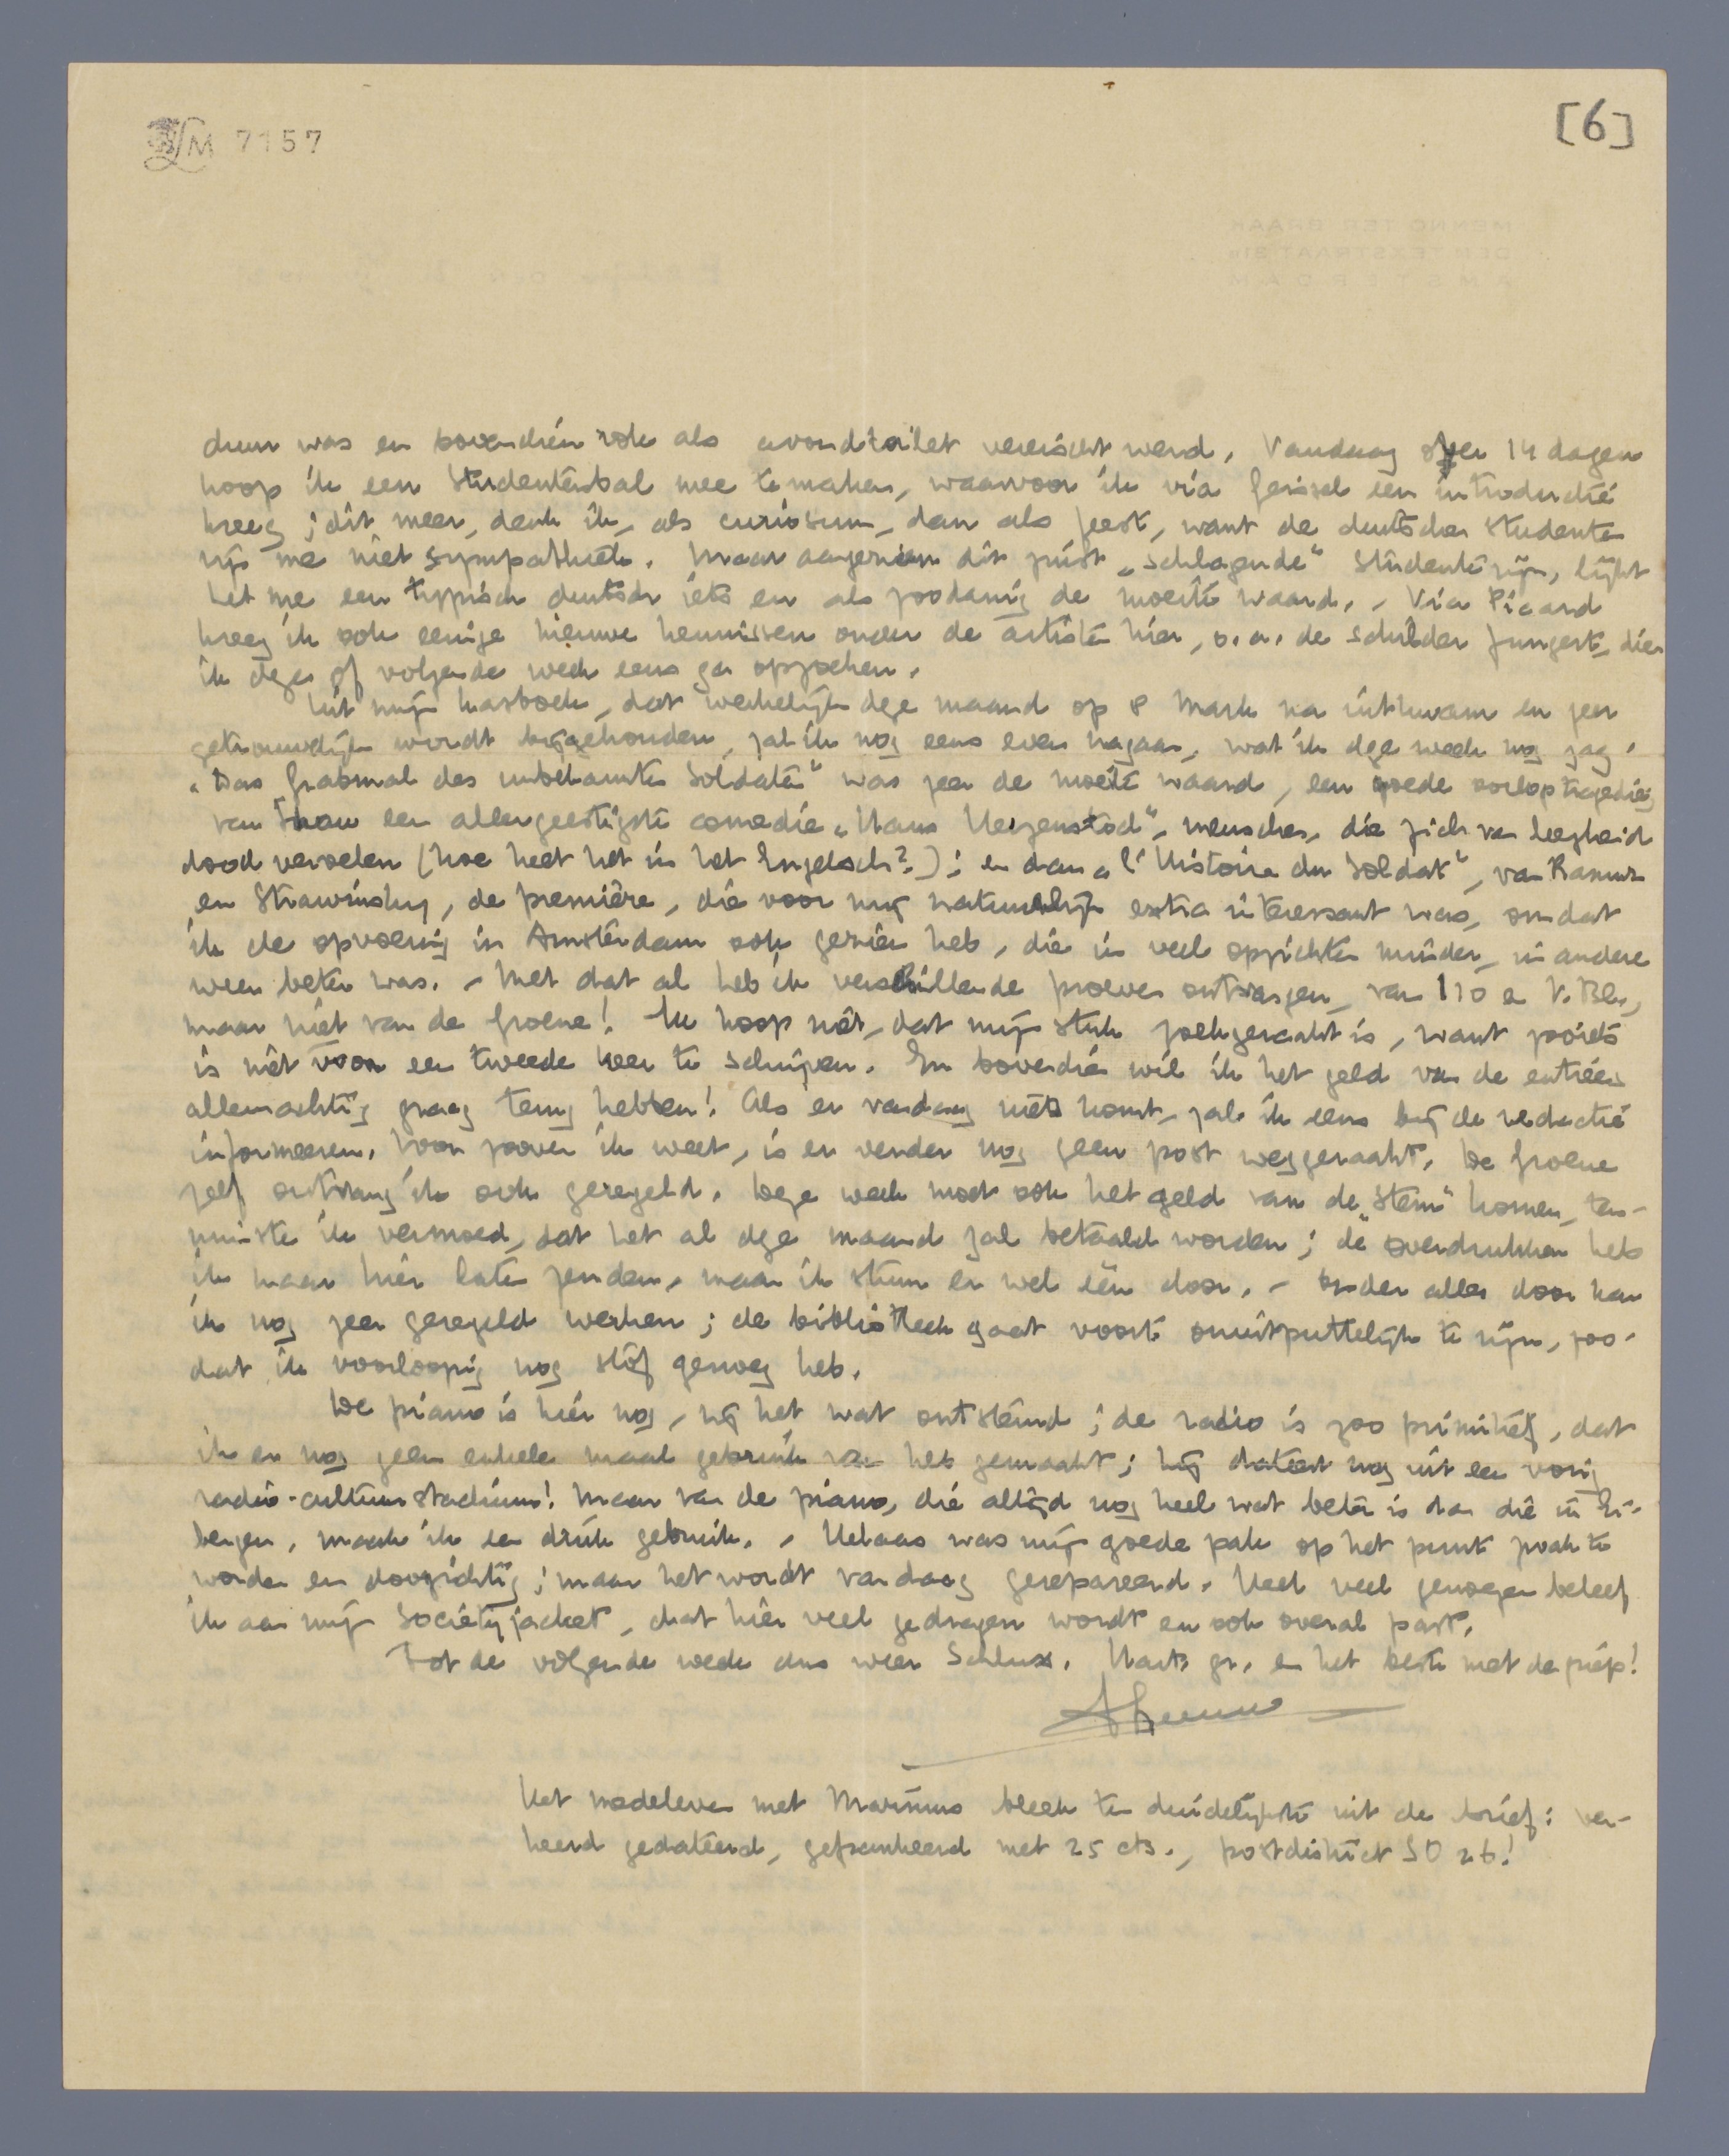 LM 7157
[6]
MENNO TER BRAAK
DEN TEXSTRAAT
AMSTERDAM
duur was en bovendien rok als avondtoilet vereischt werd. Vandaag over 14 dagen
hoop ik een Studentenbal mee te maken, waarvoor ik via Geissel een introductie
kreeg; dit meer, denk ik, als curiosum, dan als feest, want de duitsche studenten
zijn me niet sympathiek. Maar aangezien dit juist „schlagende" studenten zijn, lijkt
het me een typisch duitsch iets en als zoodanig de moeite waard. - Via Picard
kreeg ik ook eenige nieuwe kennissen onder de artisten hier, o.a. de schilder Jungert, dien
ik deze of volgende week eens ga opzoeken.
Uit mijn kasboek, dat werkelijk deze maand op 8 Mark na uitkwam en zeer
getrouwelijk wordt bijgehouden, zal ik nog eens even nagaan, wat ik deze week nog zag.
„Das Grabmal des unbekannten Soldaten" was zeer de moeite waard, een goede oorlogtragedie;
van Shaw een allergeestigste comedie „Haus Herzenstod", menschen, die zich van leegheid
dood vervelen (hoe heet het in het Engelsch?); en dan „l'Histoire du Soldat", van Ramuz
en Strawinsky, de première, die voor mij natuurlijk extra interessant was, omdat
ik de opvoering in Amsterdam ook gezien heb, die in veel opzichten minder, in andere
weer beter was. - Met dat al heb ik verschillende proeven ontvangen, van I 10 en V. Bl.,
maar niet van de Groene! Ik hoop niet, dat mijn stuk zoekgeraakt is, want zooiets
is niet voor een tweede keer te schrijven. En bovendien wil ik het geld van de entrées
allemachtig graag terug hebben! Als er vandaag niets komt, zal ik eens bij de redactie
informeeren. Voor zoover ik weet, is er verder nog geen post weggeraakt. De Groene
zelf ontvang ik ook geregeld. Deze week moet ook het geld van de „Stem" komen, ten-
minste ik vermoed, dat het al deze maand zal betaald worden; de overdrukken heb
ik maar hier laten zenden, maar ik stuur er wel één door. - Onder alles door kan
ik nog zeer geregeld werken; de bibliotheek gaat voort onuitputtelijk te zijn, zoo-
dat ik voorloopig nog stof genoeg heb.
De piano is hier nog, zij het wat ontstemd; de radio is zoo primitief, dat
ik er nog geen enkele maal gebruik van heb gemaakt; hij dateert nog uit een vorig
radio-cultuurstadium! Maar van de piano, die altijd nog heel wat beter is dan die in Ei-
bergen, maak ik een druk gebruik. - Helaas was mijn goede pak op het punt zwak te
worden en doorzichtig; maar het wordt vandaag gerepareerd. Heel veel genoegen beleef
ik aan mijn Society jacket, dat hier veel gedragen wordt en ook overal past.
Tot de volgende week dus weer Schluss. Harts gr. en het beste met de griep!
Menno
Het medeleven met Marinus bleek ten duidelijkste uit de brief: ver-
keerd gedateerd, gefrankeerd met 25 cts., postdistrict SO 26!